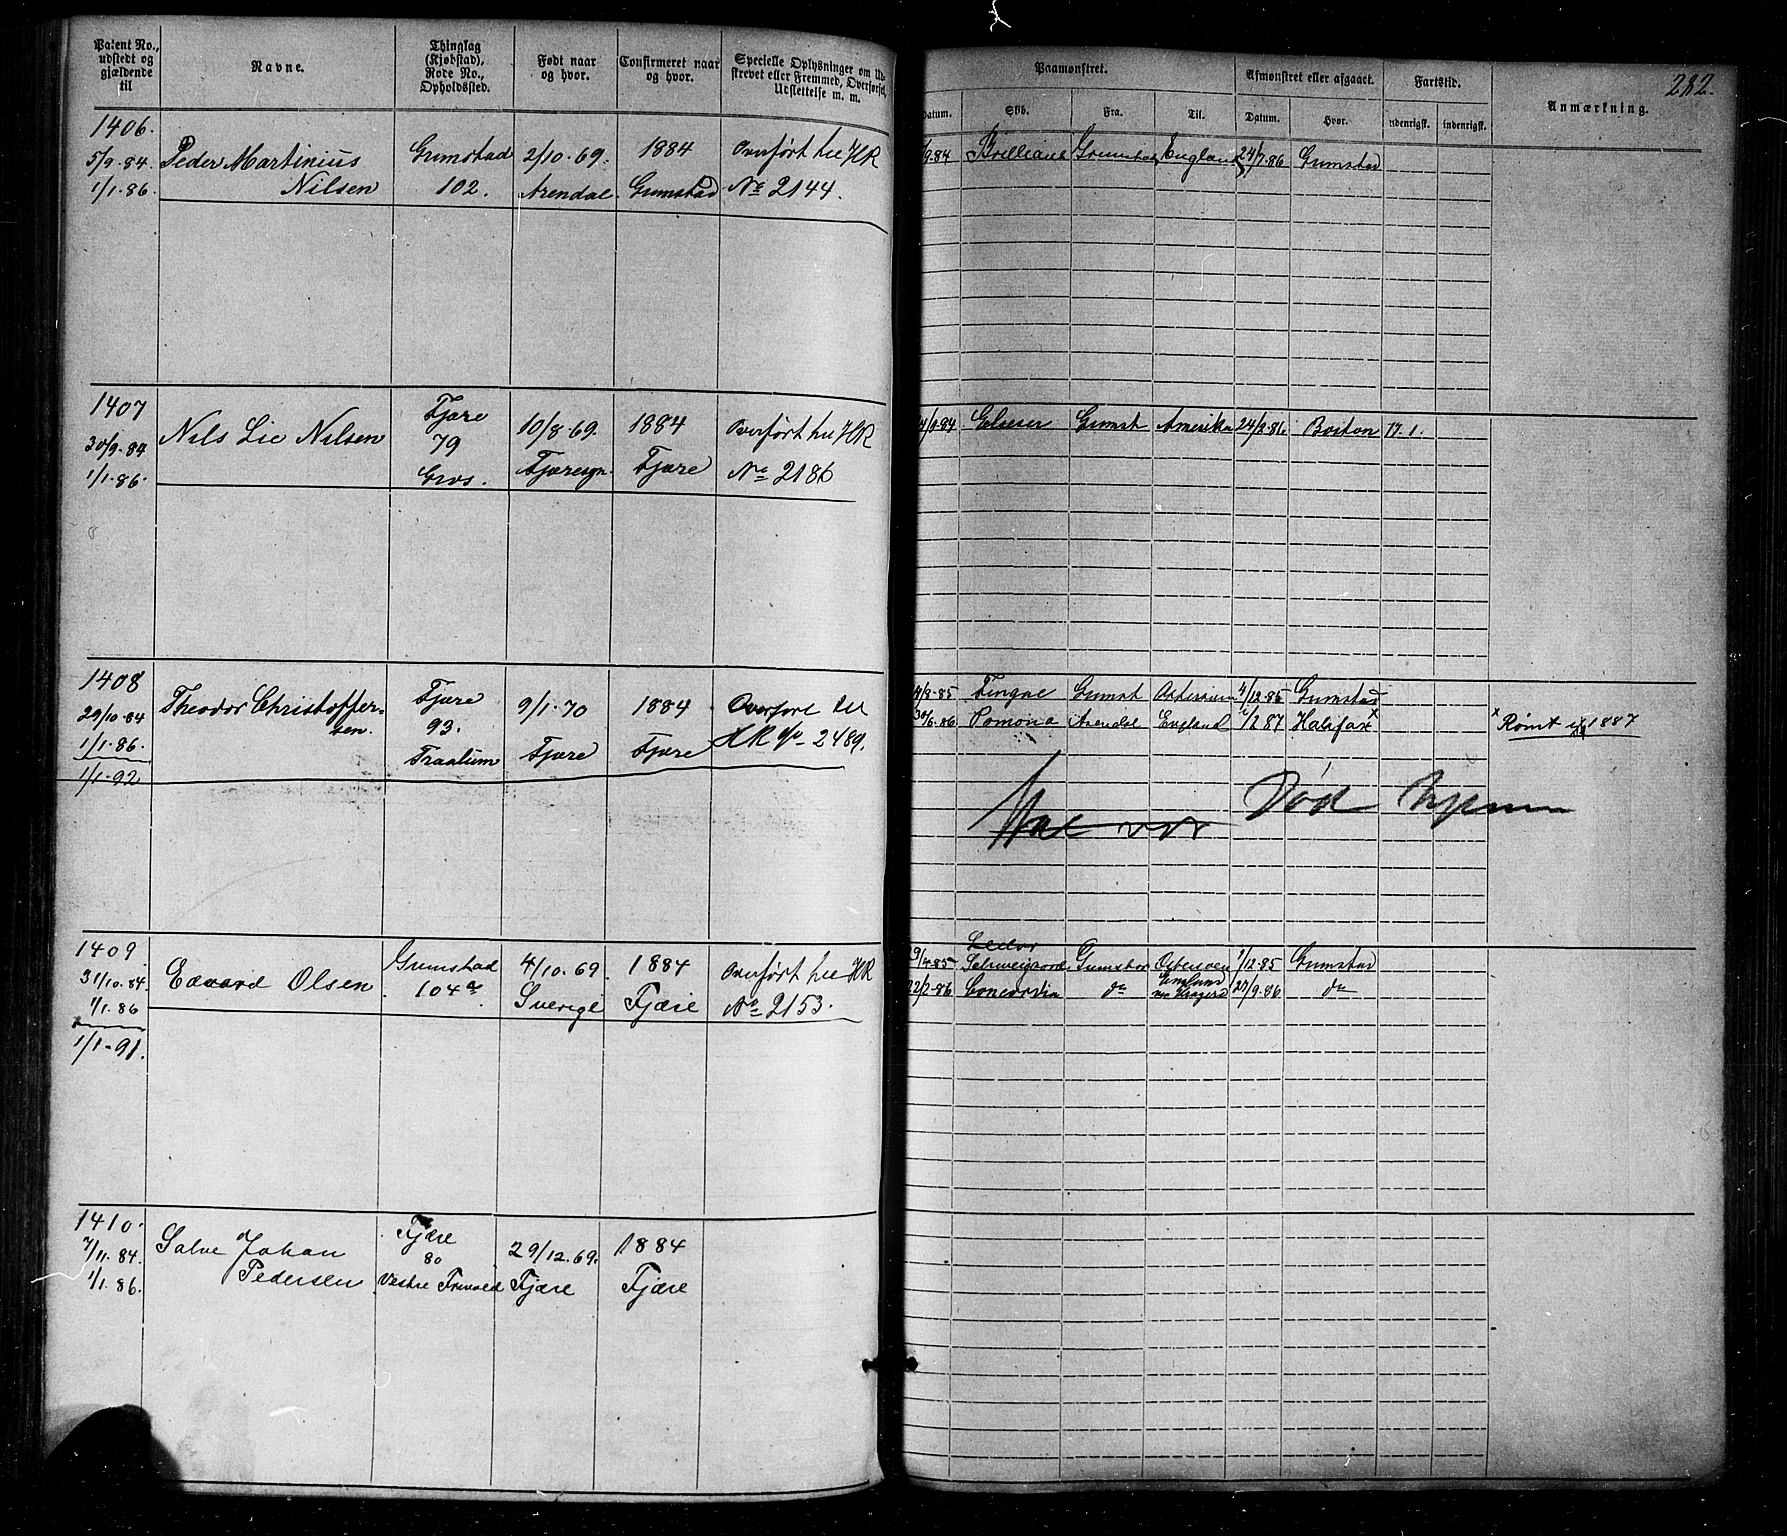 Patent No., udstedt og gjældende til
Navne.
Thinglag (Kjøbstad), Rode No., Opholdssted.
Født naar og hvor.
Confirmeret naar og hvor.
Specielle Oplysninger om Ud-
strevet eller Fremmed, Overførsel,
Udslettelse m. m.
Paamønstret.
Afmønstret eller afgaaet.
Fartstid.
Anmærkning.
282.
Datum.
Skib.
Fra.
Til.
Datum.
Hvor.
udenrigsk.
indenrigsk.
1406.
5/9 84
1/1. 86.
Peder Martinius
Nilsen
Grimstad
102.
2/10. 69.
Arendal
1884
Grimstad
Overført til HR
No 2144.
9 84 Brilliant Grimstad England 24/7 86 Grimstad
1407
30/9. 84
1/1. 86.
Nils Lie Nilsen
Fjære
79
Gros.
10/8 69.
Fjæresogn
1884
Fjære
Overført til HR
No 2186
Grimst Amerika Boston 17. 1.
1408
29/10 84
1/1. 86.
1/1-92
Theodor Christoffer-
sen.
Fjære
93.
9/1. 70
Fjære
1884
Fjære
HR No 2489.
85 Grimst 4/12 85 Grimstad
30/6. 86 Pomona Arendal England 1/2 87 Halifax x
x Rømt 1887
Død
1409.
31/10. 84
1/1. 86
1/1-91.
Edvard Olsen
Grimstad
104 a
4/10. 69.
Sverige
1884
Fjære
Overført til HR
No 2153.
85 Grimstad 1/12 85 Grimstad
22/2 86 Concordia do England 27/9. 86 do
1410.
7/11. 84.
1/1. 86.
Salve Johan
Pedersen
Fjære
80
Vestre
29/12. 69.
Fjære
1884
Fjære